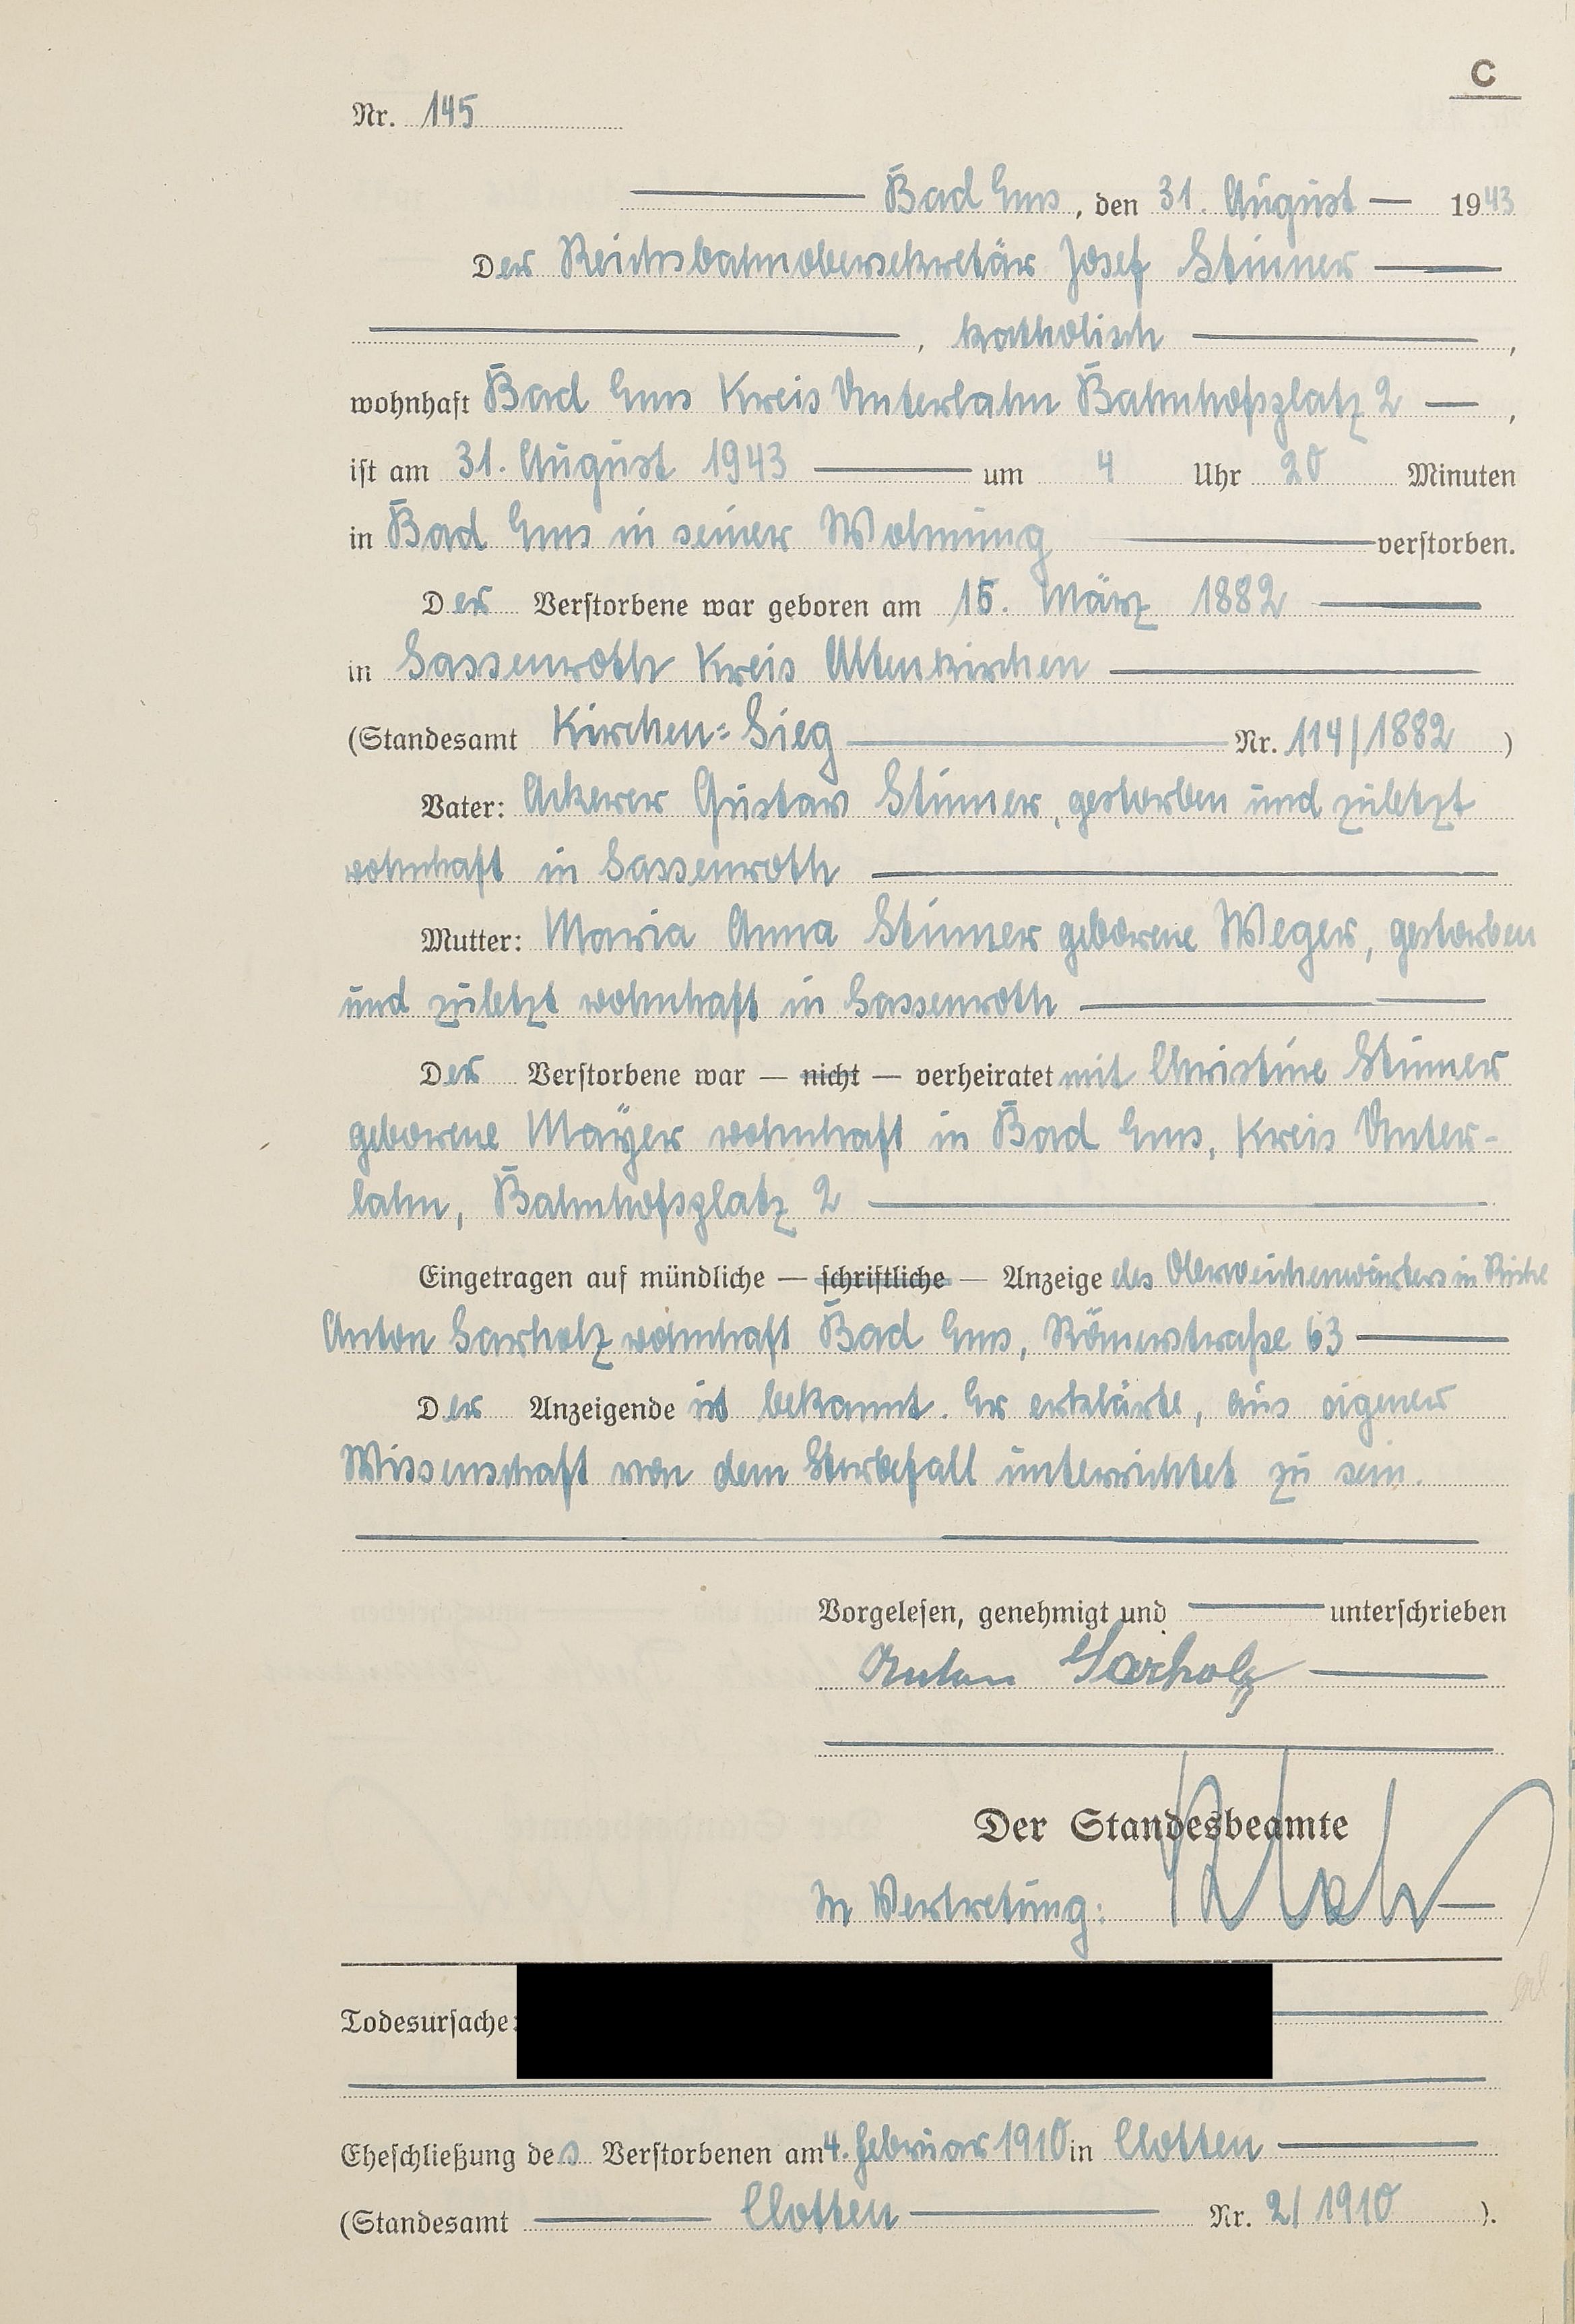 C
Nr. 145
Bad Ems, den 31. August 1943
Der Reichsbahnobersekretär Josef Stinner
, katholisch ,
wohnhaft Bad Ems Kreis Unterlahn Bahnhofsplatz 2 ,
ist am 31. August 1943 um 4 Uhr 20 Minuten
in Bad Ems in seiner Wohnung verstorben.
Der Verstorbene war geboren am 15. März 1882
in Sassenroth Kreis Altenkirchen
(Standesamt Kirchen=Sieg Nr. 114/1882 )
Vater: Ackerer Gustav Stinner, gestorben und zuletzt
wohnhaft in Sassenroth
Mutter: Maria Anna Stinner geborene Weger, gestorben
und zuletzt wohnhaft in Sassenroth
Der Verstorbene war — nicht — verheiratet mit Christine Stinner
geborene Mayer wohnhaft in Bad Ems, Kreis Unter-
lahn, Bahnhofsplatz 2
Eingetragen auf mündliche — schriftliche — Anzeige des Oberweichenwärters in
Anton Sarholz wohnhaft Bad Ems, Römerstraße 63
Der Anzeigende ist bekannt. Er erklärte, aus eigener
Wissenschaft von dem Sterbefall unterrichtet zu sein.
Vorgelesen, genehmigt und unterschrieben
Anton Sarholz
Der Standesbeamte
In Vertretung:
Todesursache:
Eheschließung des Verstorbenen am 4. Februar 1910 in Clotten
(Standesamt Clotten Nr. 2/1910 ).